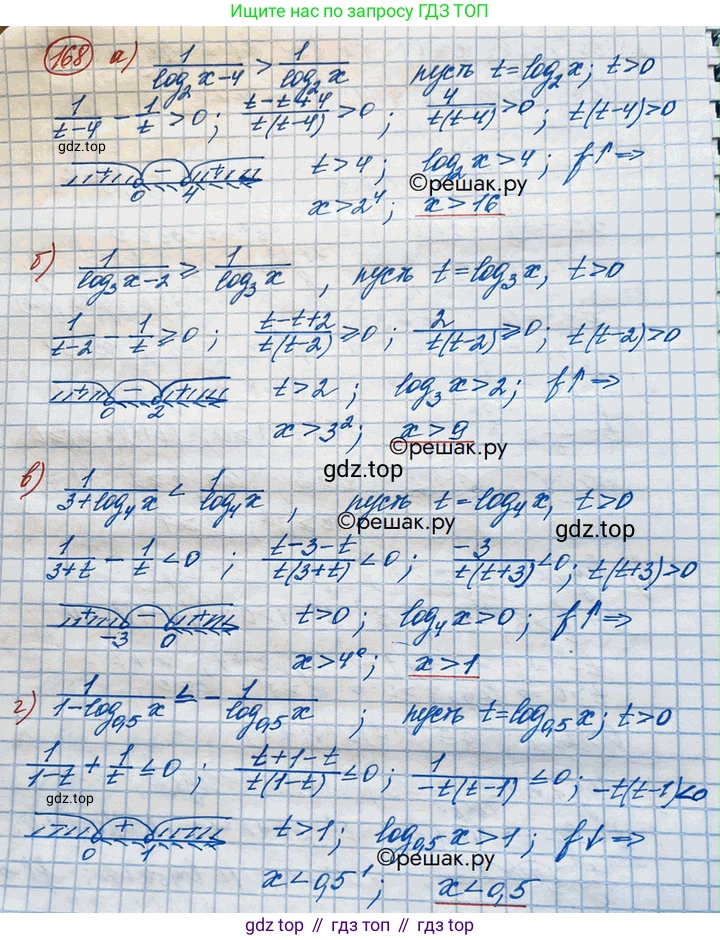 Ищите нас по запросу ГДЗ ТОП
168 а) 1/(log₂x-4) > 1/(log₂x) пусть t=log₂x; t>0
1/(t-4) - 1/t > 0; (t-t+4)/(t(t-4)) > 0; 4/(t(t-4)) > 0; t(t-4)>0
gdz.top
+ - + 0 4 t>4; log₂x>4; f↑ ⇒
©решак.ру
x>2⁴; x>16
б) 1/(log₃x-2) ≥ 1/(log₃x), пусть t=log₃x, t>0
1/(t-2) - 1/t ≥ 0; (t-t+2)/(t(t-2)) ≥ 0; 2/(t(t-2)) ≥ 0; t(t-2)>0
+ - + 0 2 t>2; log₃x>2; f↑ ⇒
x>3²; x>9
©решак.ру
gdz.top
в) 1/(3+log₄x) < 1/(log₄x), пусть t=log₄x, t>0
©решак.ру
gdz.top
1/(3+t) - 1/t < 0; (t-3-t)/(t(3+t)) < 0; -3/(t(t+3)) < 0; t(t+3)>0
+ - + -3 0 t>0; log₄x>0; f↑ ⇒
x>4⁰; x>1
г) 1/(1-log₀,₅x) ≤ - 1/(log₀,₅x); пусть t=log₀,₅x; t>0
1/(1-t) + 1/t ≤ 0; (t+1-t)/(t(1-t)) ≤ 0; 1/(-t(t-1)) ≤ 0; -t(t-1)<0
gdz.top
+ 0 1 t>1; log₀,₅x>1; f↓ ⇒
©решак.ру
x<0,5¹; x<0,5
gdz top // гдз топ // gdz.top // гдз.топ